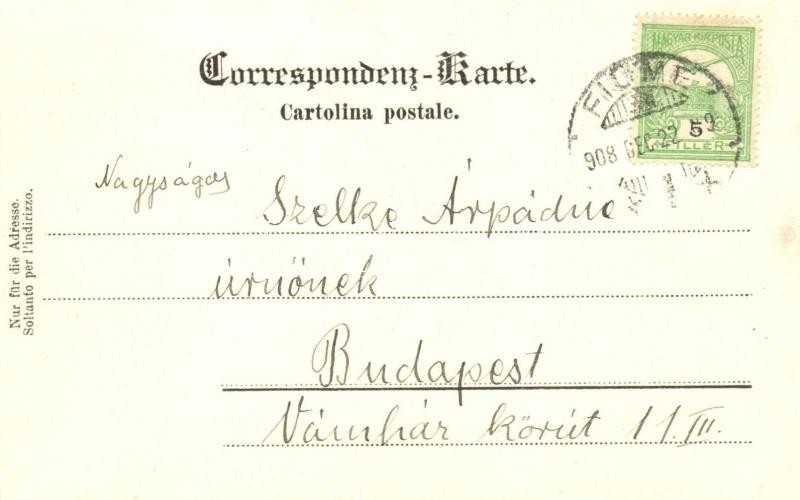 Correspondenz-Karte.
Cartolina postale.
MAGYAR KIR. POSTA
5
FILLÉR
FIUME
908 DEC 22
Nagyságos
Szelke Árpádné
úrnőnek
Budapest
Vámház körút 11 III.
Nur für die Adresse.
Soltanto per l'indirizzo.